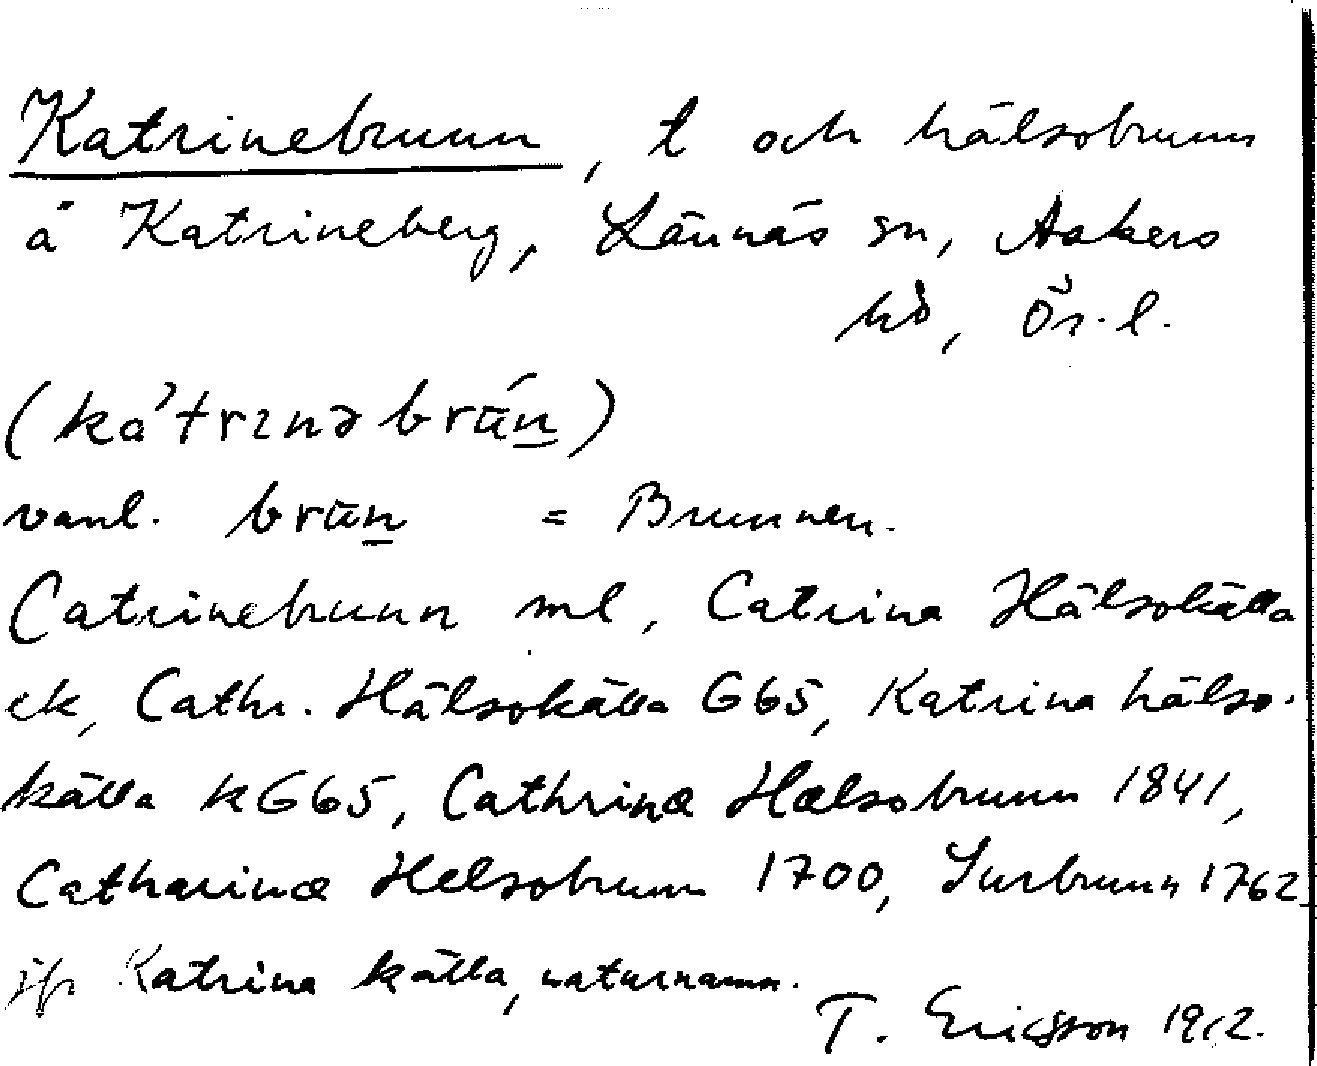 Katrinebrunn, t och hälsobrunn
å Katrineberg, Lännäs sn, Askers
hd, Ör. l.
(ka´trınə brūń)
vanl. brūn = Brunnen.
Catrinebrunn ml, Catrina Hälsokälla
ek, Cathr. Hälsokälla G65, Katrina hälso-
källa kG65, Cathrinæ Hælsobrunn 1841,
Catharinæ Helsobrunn 1700, Surbrunn 1762
jfr Katrina källa, naturnamn.
T. Ericsson 1912.